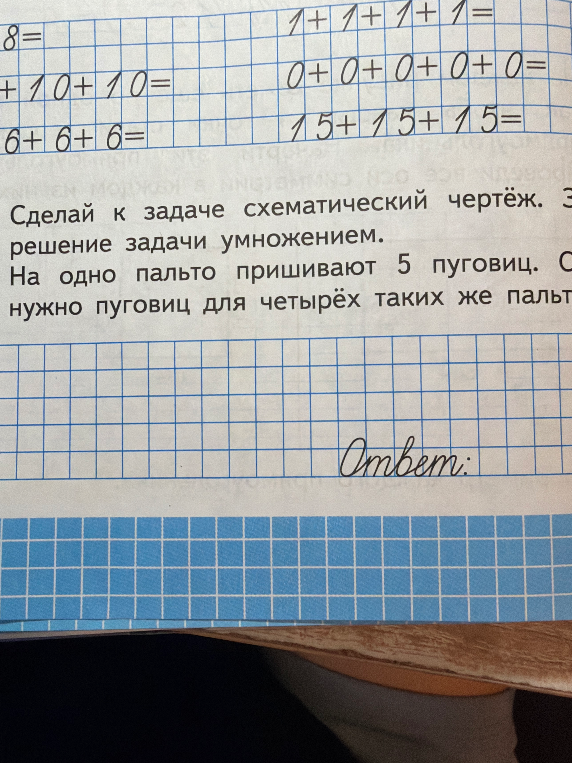 8=
1+1+1+1=
+10+10=
0+0+0+0+0=
6+6+6=
15+15+15=
Сделай к задаче схематический чертёж.
решение задачи умножением.
На одно пальто пришивают 5 пуговиц.
нужно пуговиц для четырёх таких же пальт
Ответ: